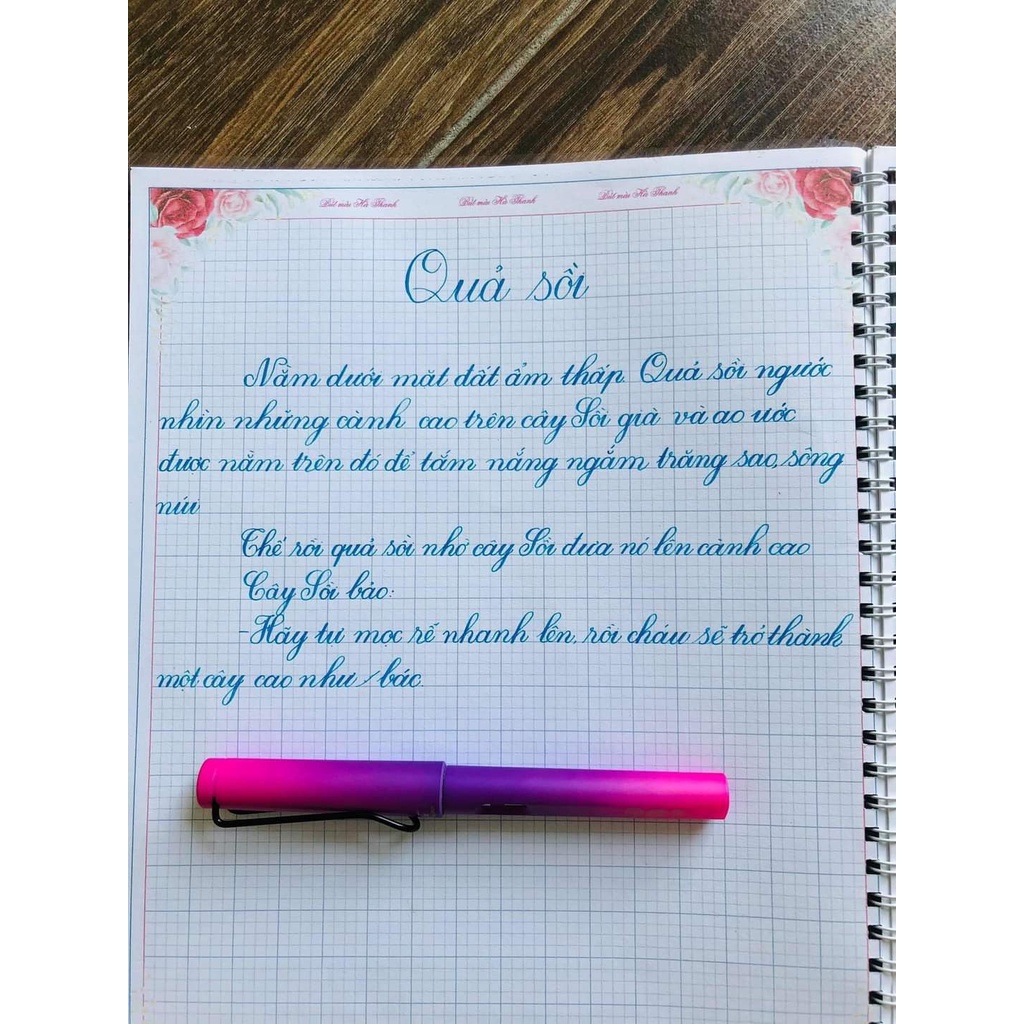 Bút mài Hà Thanh Bút mài Hà Thanh Bút mài Hà Thanh
Quả sồi
Nằm dưới mặt đất ẩm thấp. Quả sồi ngước
nhìn những cành cao trên cây Sồi già và ao ước
được nằm trên đó để tắm nắng ngắm trăng sao, sông
núi
Thế rồi quả sồi nhờ cây Sồi đưa nó lên cành cao
Cây Sồi bảo:
-Hãy tự mọc rễ nhanh lên, rồi cháu sẽ trở thành
một cây cao như bác.